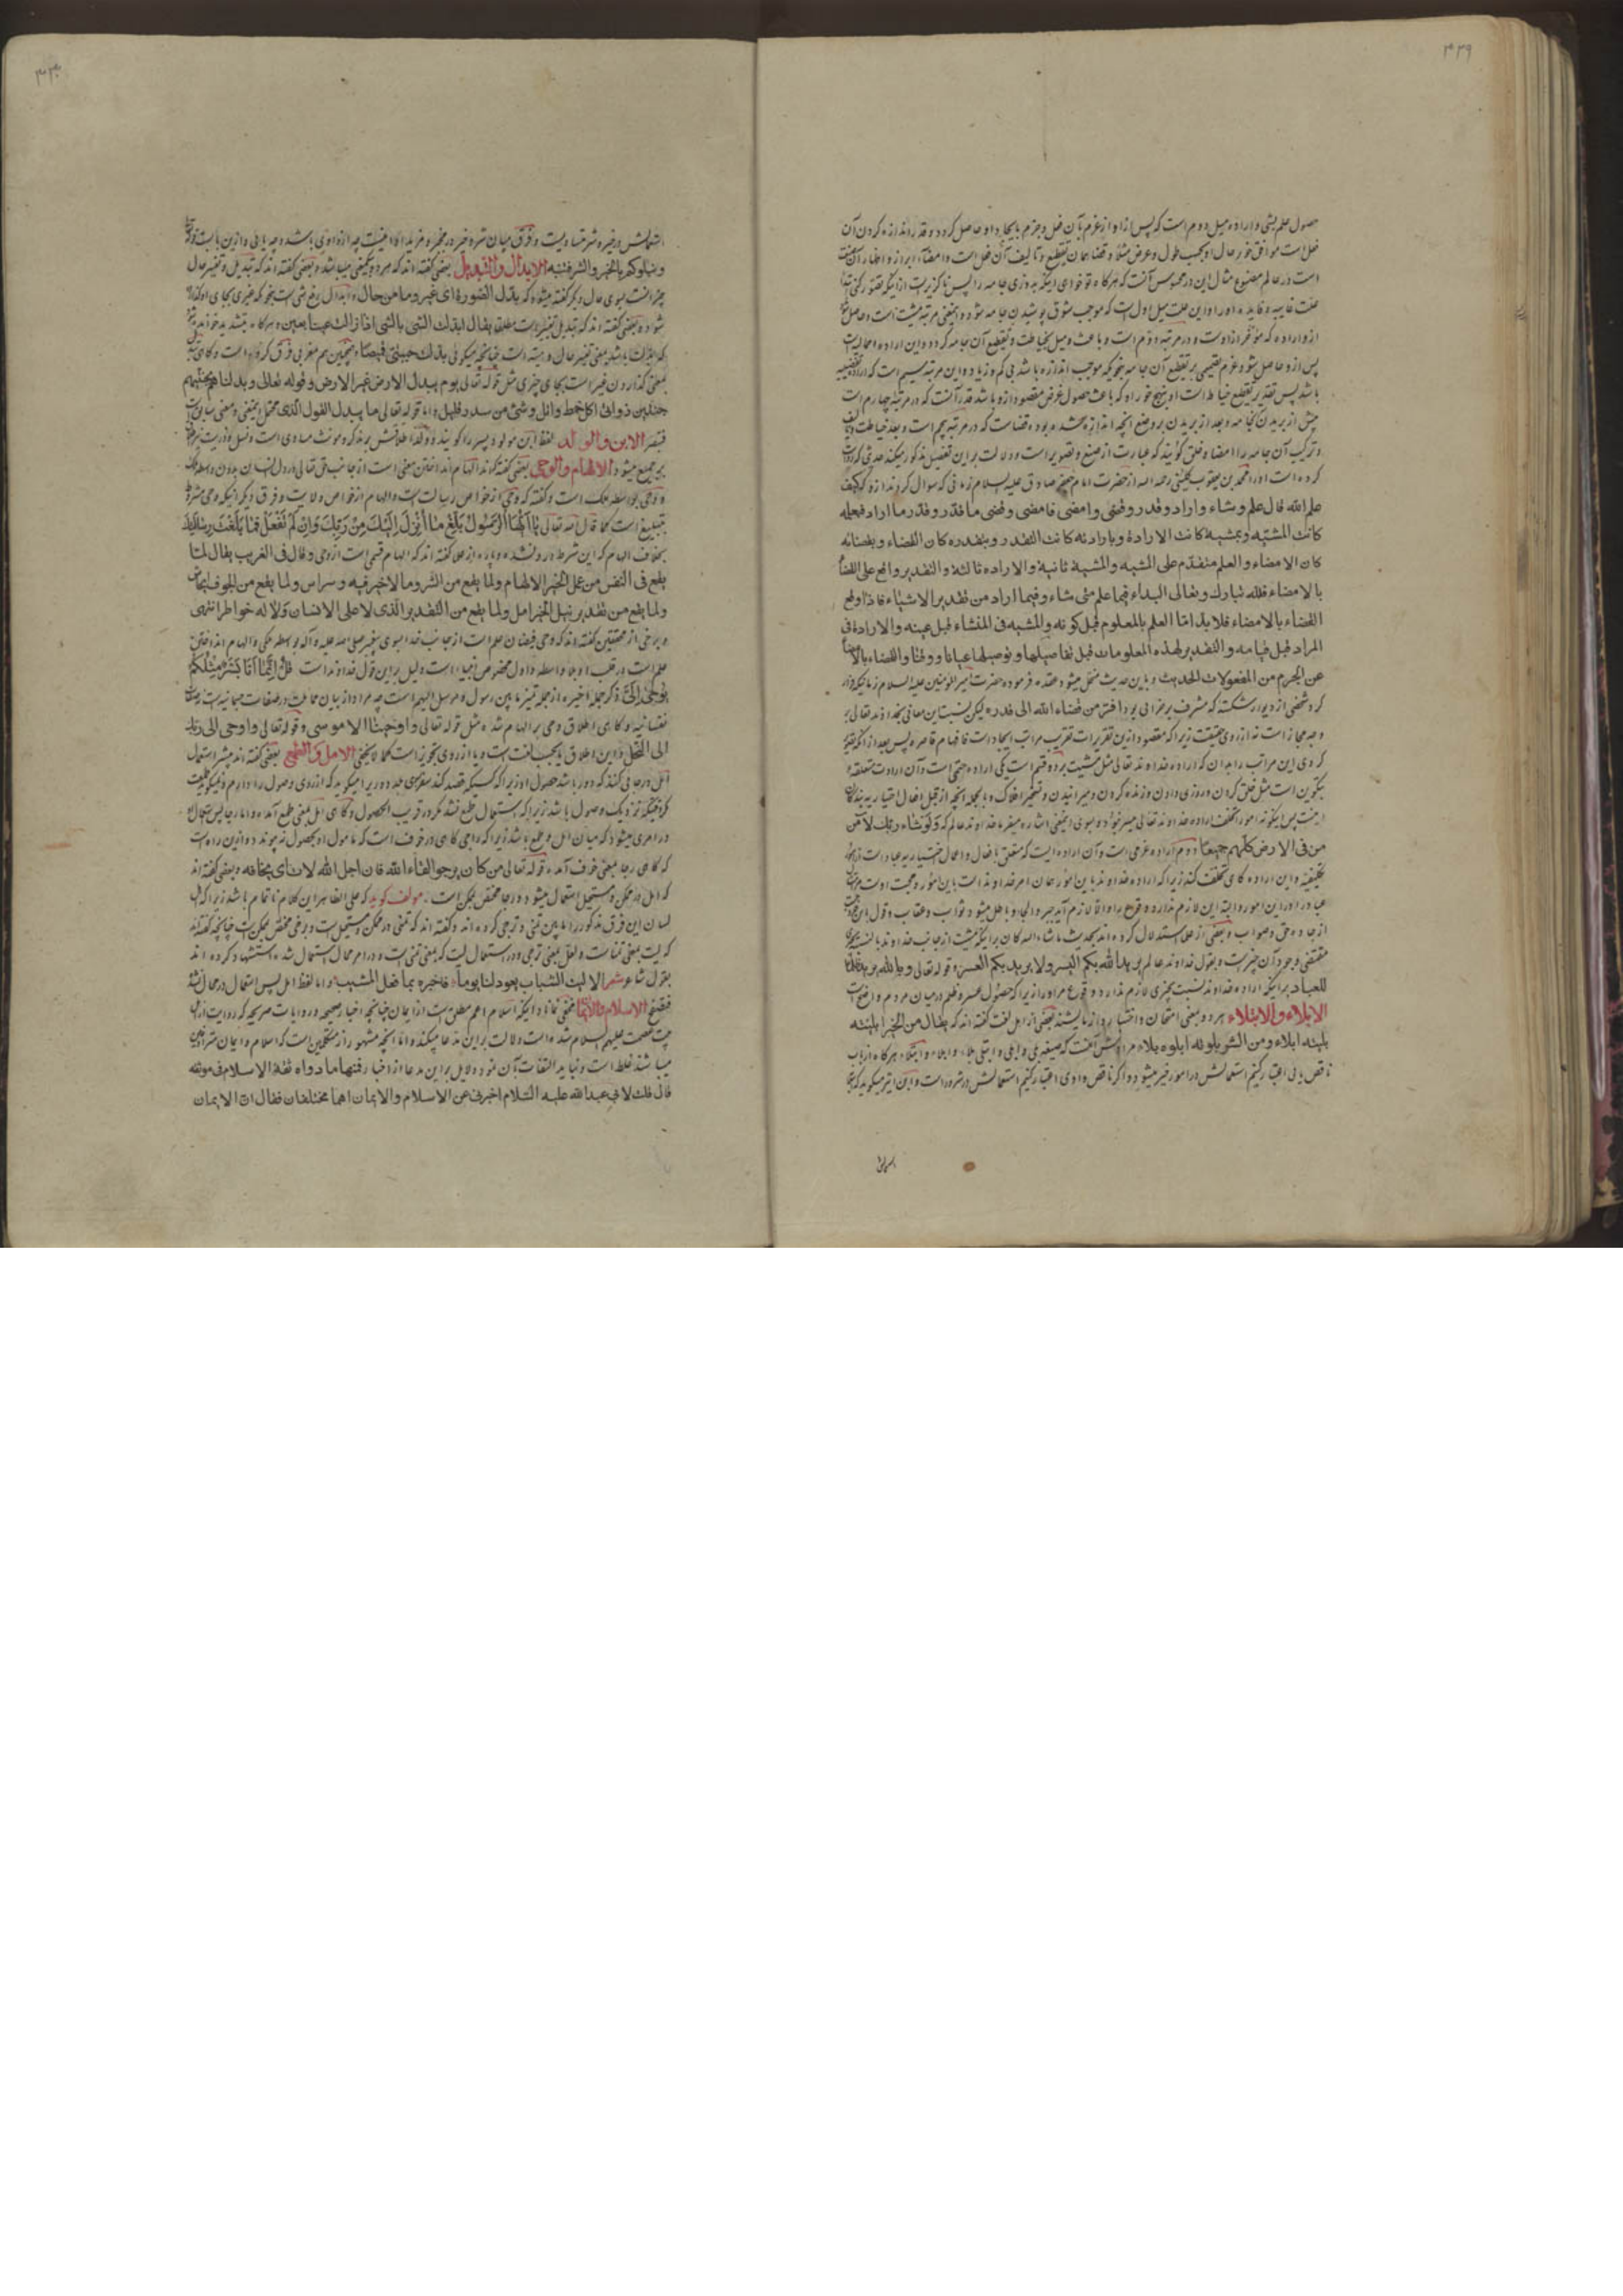 ۳۳۹
حصول علم بشی و اراده میل دوم است که پس از او از عزم بآن فعل و جزم بایجاد او حاصل کردد و قدر اندازه کردن آن
فعل است موافق خور حال او بحسب طول و عرض مثلا و قضا همان تقطیع و تالیف آن فعل است و امضا ابراز و اظهار آن
است در عالم مصنوع مثال این در محسوس آنست که هرکاه تو خواهی اینکه بدوزی جامه را پس ناکزیر است از اینکه تصور کنی
علت غاییه و فایده او را و این علت میل اول است که موجب شوق پوشیدن جامه شود و اینمعنی مرتبه مشیت است و حاصل
از و اراده که مؤخر از اوست و در مرتبه دوم است و باعث و میل بخیاطت و تقطیع آن جامه کردد و این اراده اجمالیست
پس از و حاصل شود عزم بر تقطیع آن جامه بنحویکه موجب اندازه باشد بی کم و زیاد و این مرتبه سیم است که اراده
باشد پس تقدیر تقطیع خیاط است او بنهج خور او که باعث حصول غرض مقصود از و باشد قدر آنست که در مرتبه چهارم است
پیش از بریدن کجامه و بعد از بریدن بر وضع آنچه اندازه شده بوده قضاست که در مرتبه پنجم است و بعد خیاطت
و ترکیب آن جامه را امضا و خلق کویند که عبارت از صنع و تصویر است و دلالت بر این تفصیل مذکور میکند حدیثی که
کرده است او را محمد بن یعقوب کلینی رحمه الله از حضرت امام جعفر صادق علیه السلام زمانی که سوال کردند از و که کیف
علم الله قال علم و شاء و اراد و قدر و قضی و امضی فامضی ما قضی و قضی ما قدر و قدر ما اراد فبعلمه
کانت المشیه و بمشیه کانت الارادة و بارادته کانت التقدیر و بتقدیره کان القضاء و بقضائه
کان الامضاء و العلم متقدم علی المشیه و المشیه ثانیة و الاراده ثالثة و التقدیر واقع علی القضاء
بالامضاء فلله تبارک و تعالی البداء فیما علم متی شاء و فیما اراد من تقدیر الاشیاء فاذا وقع
القضاء بالامضاء فلا بداء العلم بالمعلوم قبل کونه و المشیه فی المنشاء قبل عینه و الارادة فی
المراد قبل قیامه و التقدیر لهذه المعلومات قبل تفاصیلها و توصیلها عیانا و وقتا و القضاء بالامضاء
من المفعولات الحدیث و باین حدیث منحل میشود عقده فرموده حضرت امیر المومنین علیه السلام زمانیکه فرار
کرد شخصی از دیوار شکسته که مشرف بر خرابی بود افر من قضاء الله الی قدره لیکن نسبت این معانی بخداوند تعالی بر
وجه مجاز است نه از روی حقیقت زیرا که مقصود از این تقریرات تقریب مراتب ایجاد است فافهام قاصره پس بعد از آنکه
کردی این مراتب را بدان که اراده خداوند تعالی مثل مشیت بر دو قسم است یکی اراده حتمی است و آن ارادت متعلقه
بتکوین است مثل خلق کردن و روزی دادن و زنده کردن و میرانیدن و تسخیر افلاک و بالجمله آنچه از قبل افعال اختیاریه بندکان
نیست پس اینکونه امور را تخلف اراده خداوند تعالی میسر نبود و بسوی اینمعنی اشاره میفرماید خداوند عالم که ولو شاء ربک لآمن
من فی الارض کلهم جمیعا دوم اراده عزمی است و آن اراده ایست که متعلق بافعال و اعمال اختیاریه عباد است از امور
تکلیفیه و این اراده کاهی تخلف کند زیرا که اراده خداوند باین امور همان امر خداوند است باین امور و محبت اوست
عباد را در این امور و البته این لازم ندارد وقوع مراد او الا لازم آید جبر و الجا و باطل میشود ثواب و عقاب و قول
از جاده حق و صواب و بعضی از علما استدلال کرده اند بحدیث ما شاء الله کان بر اینکه مشیت از جانب خداوند بالنسبه بچیزی
مقتضی وجود آن چیز است و بقول خداوند عالم یرید الله بکم الیسر و لا یرید بکم العسر و قوله تعالی و ما الله یرید ظلما
للعباد بر اینکه اراده خداوند نسبت بچیزی لازم ندارد وقوع مراد را زیرا که حصول عسر و ظلم در میان مردم واضح است
الابلاء و الابتلاء هر دو بمعنی امتحان و اختبار و آزمایشند بعضی از اهل لغت کفته اند که یقال من الخیر ابلیته
بلیته ابلاء و من الشر بلوته ابلوه بلاء
ناقص یائی اعتبار کنیم استعمالش در امور خیر میشود و اکر ناقص واوی اعتبار کنیم استعمالش در شرور است و ابن اثیر میکوید که
استعمالش
۳۳۰
استعمالش در خیر و شر متساویست و فرق میان شر و خیر در مجرد و مزید
و نبلوکم بالخیر و الشر فتنه الابدال و التبدیل بعضی کفته اند که هر دو بیکمعنی میباشد و بعضی کفته اند که تبدیل و تغییر حال
چیز است بسوی حال دیکر کفته میشود که بدل الصورة ای غیر وما من حال و ابدال رفع شی است بنحویکه غیری بجای او کذارد
شود و بعضی کفته اند که تبدیل تغییر است مطلق یقال ابدلت الشی بالشی اذا ازلت عینا بعین
بمعنی تغییر حال و هیئت است چنانچه میکوئی بدلت جبتی قمیصا و همچنین هم مغربی فرق کرده است و کاهی
بمعنی کذاردن غیر است بجای چیزی مثل قوله تعالی یوم یبدل الارض غیر الارض و قوله تعالی و بدلناهم بجنتیهم
جنتین ذواتی اکل خمط و اثل و شیء من سدر قلیل و اما قوله تعالی ما یبدل القول لدی محتمل اینمعنی و معنی سابق است
فتبصر الابن و الولد لفظ ابن مولود پسر را کویند و ولد اطلاقش بر مذکر و مونث مساوی است و نسل و ذریت
بر جمیع میشود الالهام و الوحی بعضی کفته اند الهام انداختن معنی است از جانب حق تعالی در دل انسان بدون واسطه ملک
و وحی بواسطه ملک است و کفته که وحی از خواص رسالت است و الهام از خواص ولایت و فرق دیکر اینکه وحی مشروط
بتبلیغ است کما قال الله تعالی یا ایها الرسول بلغ ما انزل الیک من ربک و ان لم تفعل فما بلغت رسالته
بخلاف الهام که این شرط در و نشده و پاره از علما کفته اند که الهام قسمی است از وحی و قال فی الغریب یقال لما
یقع فی النفس من عمل الخیر الالهام و لما یقع من الشر و ما لا خیر فیه وسواس و لما یقع من الخوف ایجاس
و لما یقع من تقدیر نیل الخیر امل و لما یقع من التقدیر الذی لا علی الانسان و لا له خواطر انتهی
و برخی از محققین کفته اند که وحی فیضان علم است از جانب خدا بسوی پیغمبر صلی الله علیه و آله بواسطه ملکی و الهام انداختن
علم است در قلب او بلا واسطه و اول مخصوص انبیاء است و دلیل بر این قول خداوند است قل انما انا بشر مثلکم
یوحی الی ذکر جمله اخیره از جمله تمیز مابین رسول و مرسل الیهم است چه مراد از بیان مماثلت در صفات جسمانیه است
نفسانیه و کاهی اطلاق وحی بر الهام شده مثل قوله تعالی و اوحینا الی ام موسی و قوله تعالی و اوحی الی ربک
الی النحل و این اطلاق یا بحسب لغت است و یا از روی تجوز است کما لا یخفی الامل و الطمع بعضی کفته اند بیشتر استعمال
امل در جائی کنند که دور باشد حصول او زیرا که کسیکه قصد کند سفری بلد دور را میکوید که ارزوی وصول را دارم و نمیکوید طمعت
مکر وقتیکه نزدیک وصول باشد زیرا که استعمال طمع نشد مکر در قریب الحصول و کاهی امل بمعنی طمع آمده و اما رجا پس استعمال
در امری میشود که میان امل و طمع باشد زیرا که راجی کاهی در خوف است که مامول او بحصول نه پیوندد و از این راه است
که کاهی رجا بمعنی خوف آمده قوله تعالی من کان یرجو لقاء الله فان اجل الله لآت ای یخافه و بعضی کفته اند
که امل در ممکن و مستحیل استعمال میشود و رجا مختص بممکن است. مولف کوید که علی الظاهر این کلام ناتمام باشد زیرا که
لسان این فرق مذکور را مابین تمنی و ترجی کرده اند و کفته اند که تمنی در ممکن و مستحیل است و ترجی مختص بممکن است چنانچه کفته اند
که لیت بمعنی تمنا است و لعل بمعنی ترجی و در استعمال لیت که بمعنی تمنی است و در امر محال استعمال شده استشهاد کرده اند
بقول شاعر شعر الا لیت الشباب یعود لنا یوما فاخبره بما فعل المشیب و اما لفظ امل پس استعمال در محال نشد
فتتبع الاسلام و الایمان مخفی نماند اینکه اسلام اعم مطلق است از ایمان چنانچه اخبار صحیحه و روایات صریحه که روایت از اهل
بیت عصمت علیهم السلام شده است دلالت بر این مدعا میکند و اما آنچه مشهور از متکلمین است که اسلام و ایمان مترادفین
میباشند غلط است و نباید التفات بآن نمود و دلایل بر این مدعا از اخبار فمنها ما رواه ثقة الاسلام فی موثقه
قال قلت لابی عبدالله علیه السلام اخبرنی عن الاسلام و الایمان اهما مختلفان فقال ان الایمان